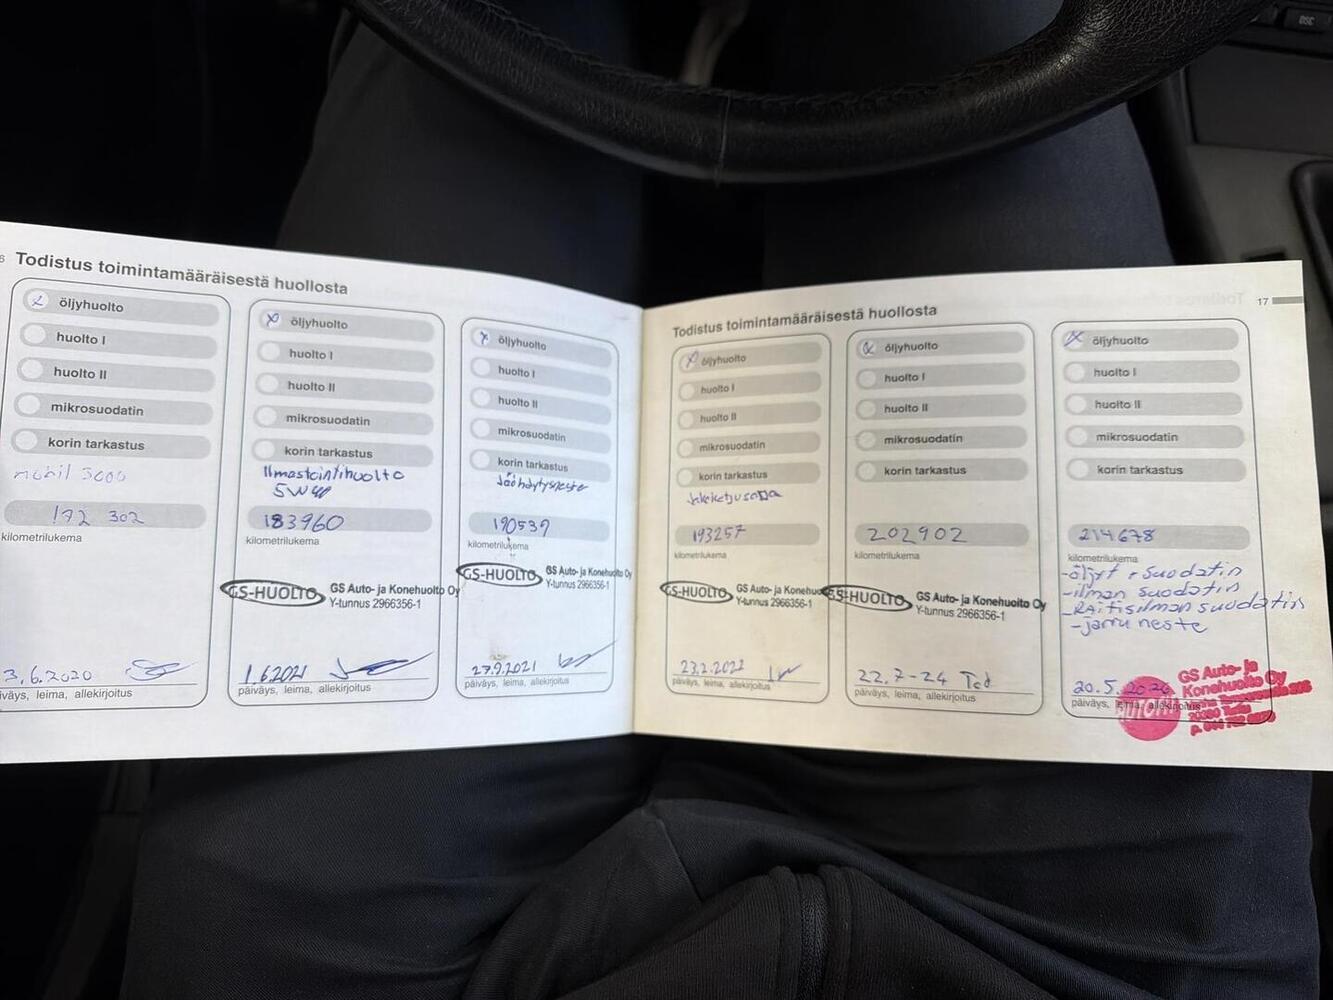 DSC
6 Todistus toimintamääräisestä huollosta
x öljyhuolto
huolto I
huolto II
mikrosuodatin
korin tarkastus
mobil 3000
172 302
kilometrilukema
3.6.2020
päiväys, leima, allekirjoitus
x öljyhuolto
huolto I
huolto II
mikrosuodatin
korin tarkastus
Ilmastointihuolto
5W40
183960
kilometrilukema
GS-HUOLTO GS Auto- ja Konehuolto Oy
Y-tunnus 2966356-1
1.6.2021
päiväys, leima, allekirjoitus
x öljyhuolto
huolto I
huolto II
mikrosuodatin
korin tarkastus
Jäähdytysneste
190539
kilometrilukema
GS-HUOLTO GS Auto- ja Konehuolto Oy
Y-tunnus 2966356-1
27.9.2021
päiväys, leima, allekirjoitus
Todistus toimintamääräisestä huollosta 17
x öljyhuolto
huolto I
huolto II
mikrosuodatin
korin tarkastus
193257
kilometrilukema
GS-HUOLTO GS Auto- ja Konehuo
Y-tunnus 2966356-1
23.2.2022
päiväys, leima, allekirjoitus
x öljyhuolto
huolto I
huolto II
mikrosuodatin
korin tarkastus
202902
kilometrilukema
GS-HUOLTO GS Auto- ja Konehuolto Oy
Y-tunnus 2966356-1
22.7-24
päiväys, leima, allekirjoitus
x öljyhuolto
huolto I
huolto II
mikrosuodatin
korin tarkastus
214678
kilometrilukema
-öljyt + suodatin
-ilman suodatin
-RAitisilman suodatin
-jarru neste
20.5.2026
päiväys, leima, allekirjoitus
GS Auto- ja
Konehuolto Oy